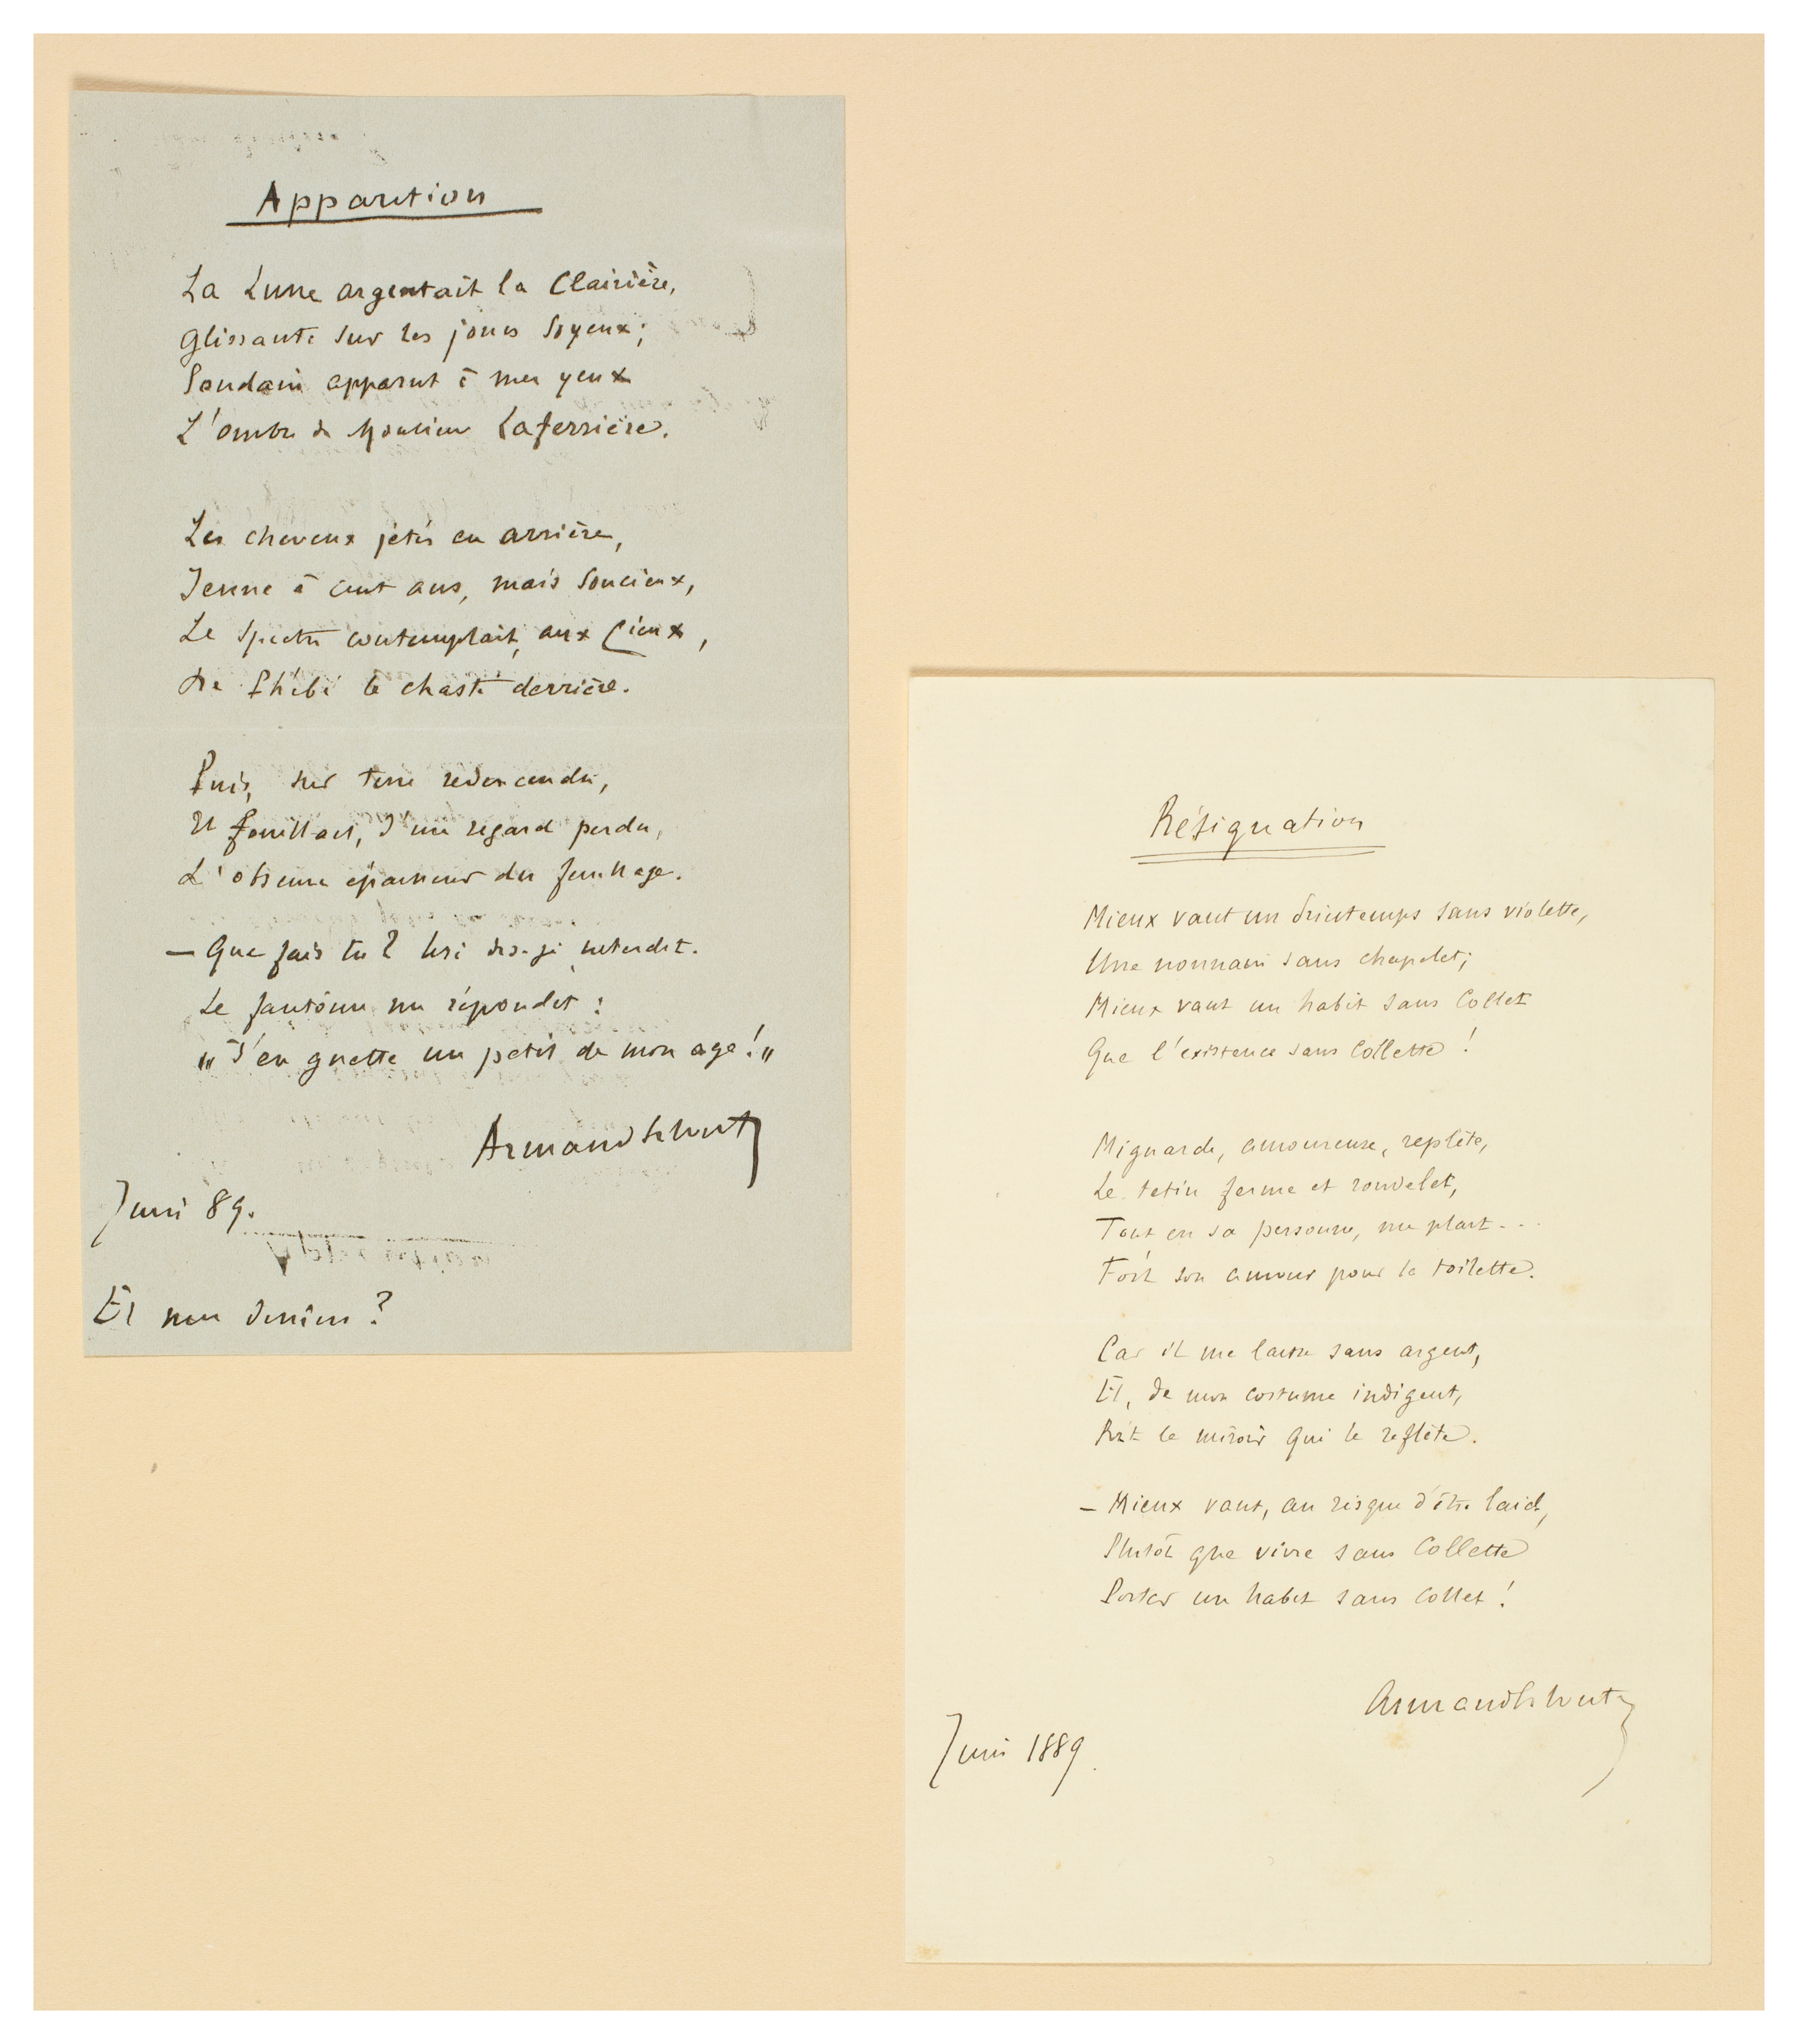 Apparition
La Lune argentait la Clairière,
Glissante sur les joncs soyeux;
Soudain apparut à mes yeux
L'ombre de Monsieur Laferrière.
Les cheveux jetés en arrière,
Jeune à cent ans, mais soucieux,
Le spectre contemplait, aux Cieux,
De Phébé le chaste derrière.
Puis, sur terre redescendu,
Et fouillant, d'un regard perdu,
L'obscure épaisseur du feuillage.
— Que fais tu? lui dis-je interdit.
Le fantôme me répondit :
„ J'en guette un petit de mon age! „
Armand Schwartz
Juin 89.
Et mon dessin ?
Résignation
Mieux vaut un printemps sans violette,
Une nonnain sans chapelet;
Mieux vaut un habit sans Collet
Que l'existence sans Collette !
Mignarde, amoureuse, replète,
Le tetin ferme et rondelet,
Tout en sa personne, me plait...
Fors son amour pour la toilette.
Car il me laisse sans argent,
Et, de mon costume indigent,
Rit le miroir qui le reflète.
— Mieux vaut, au risque d'être laid,
Plutôt que vivre sans Collette
Porter un habit sans Collet !
Juin 1889.